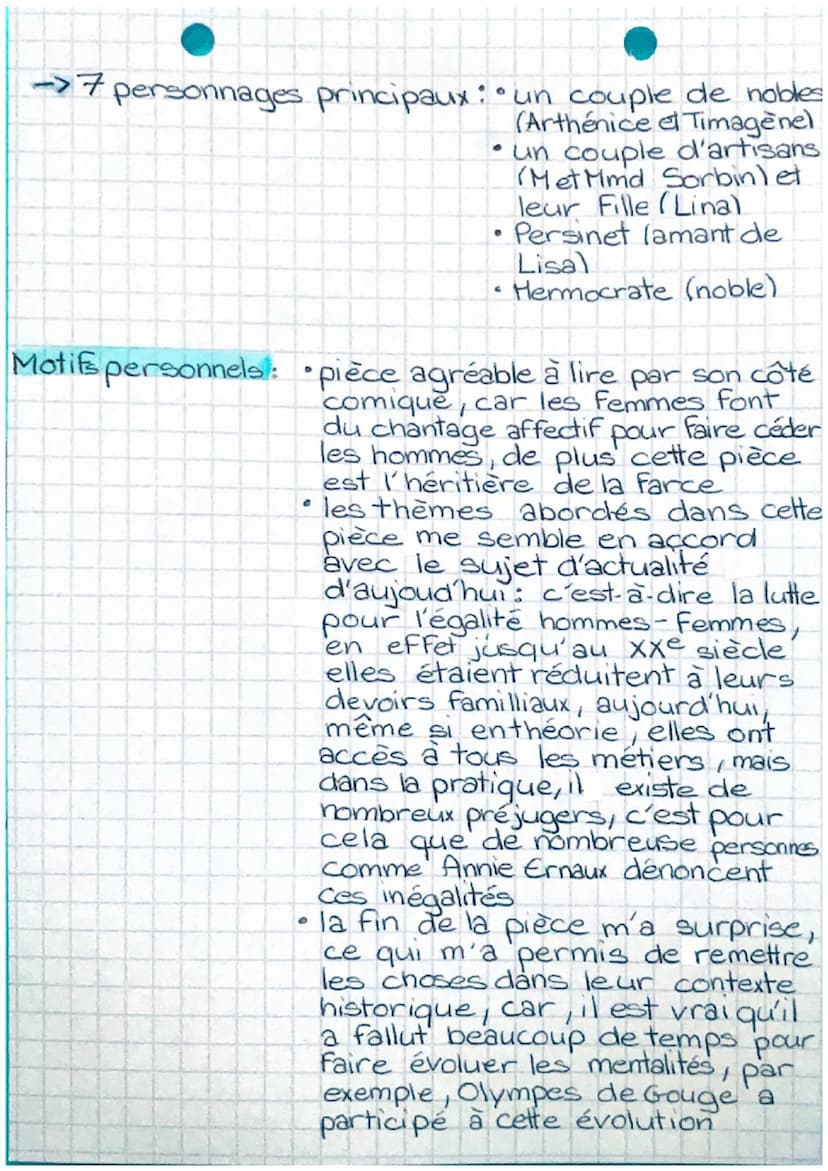 -> 7 personnages principaux : • un couple de nobles
(Arthénice et Timagène)
• un couple d'artisans
(M et Mmd Sorbin) et
leur Fille (Lina)
• Persinet (amant de
Lisa)
• Hermocrate (noble)
Motifs personnels : • pièce agréable à lire par son côté
comique, car les femmes font
du chantage affectif pour faire céder
les hommes, de plus cette pièce
est l'héritière de la farce
• les thèmes abordés dans cette
pièce me semble en accord
avec le sujet d'actualité
d'aujoud'hui : c'est-à-dire la lutte
pour l'égalité hommes-femmes,
en effet jusqu'au XXe siècle
elles étaient réduitent à leurs
devoirs familliaux, aujourd'hui,
même si en théorie, elles ont
accès à tous les métiers, mais
dans la pratique, il existe de
nombreux préjugers, c'est pour
cela que de nombreuse personnes
comme Annie Ernaux dénoncent
ces inégalités
• la fin de la pièce m'a surprise,
ce qui m'a permis de remettre
les choses dans leur contexte
historique, car, il est vrai qu'il
a fallut beaucoup de temps pour
faire évoluer les mentalités, par
exemple, Olympes de Gouge a
participé à cette évolution